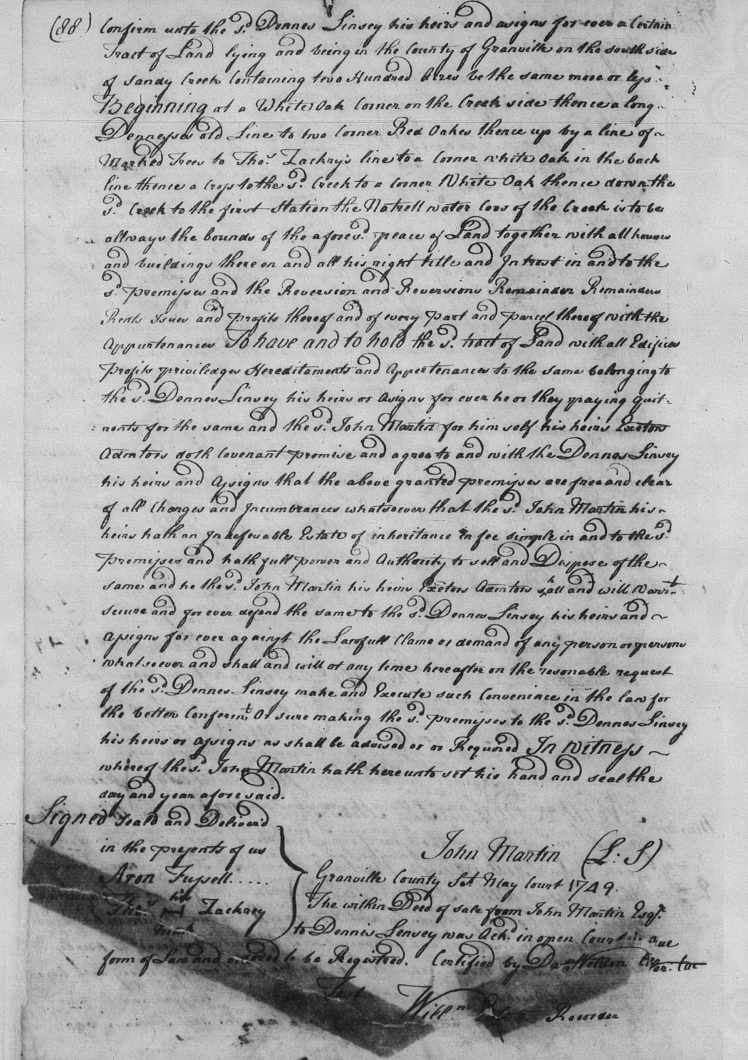 (88) Confirm unto the sd. Dennes Linsey his heirs and asigns for ever a Certin
Tract of Land lying and being in the County of Granville on the south side
of Sandy Creek Containing two Hundred Acres be the same more or less
Beginning at a White Oak Corner on the Creek side thence a long
Denneses old Line to two Corner Red Oakes thence up by a line of
Marked Trees to Thos. Zackry's line to a Corner white Oak in the back
line thence a Cross to the sd. Creek to a Corner White Oak thence down the
sd. Creek to the first Station the Natrell water Cors of the Creek is to be
allways the bounds of the afore sd. peace of Land together with all houses
and buildings there on and all his right title and Intrest in and to the
sd. premisses and the Reversion and Reversions Remainder Remainders
Rents Issues and profits thereof and of every part and parcel thereof with the
Appurtenances To have and to hold the sd. tract of Land with all Edifices
profits priviledges Hereditaments and Appertenances to the same belonging to
the sd. Dennes Linsey his heirs or Asigns for ever he or they paying quit
rents for the same and the sd. John Martin for him self his heirs Exetors
Admtors doth Covenant promise and agree to and with the Dennes Linsey
his heirs and Assigns that the above granted premisses are free and clear
of all Charges and Incumbrances whatsoever that the sd. John Martin his
heirs hath an Indefesable Estate of inheritance in fee simple in and to the sd.
premisses and hath full power and Authority to sell and Dispose of the
same and he the sd. John Martin his heirs Exetors Admtors shall and will Warrt.
secure and for ever defend the same to the sd. Dennes Linsey his heirs and
assigns for ever against the Lawfull Clame or demand of any person or persons
whatsoever and shall and will at any time hereafter on the resonable request
of the sd. Dennes Linsey make and Execute such Conveniance in the law for
the better Conferint. Or sure making the sd. premisses to the sd. Dennes Linsey
his heirs or assigns as shall be advised or or Required In witness
whereof the sd. John Martin hath here unto set his hand and seal the
day and year afore said.
Signed seald and Deliverd
in the presents of us
John Martin (L: S)
Aron Fussell
Granville County Sct. May Court 1749.
his
Thos. Zackrey
mark
The within Deed of sale from John Martin Esqr.
to Dennis Lensey was Ackd. in open Court in due
form of Law and ordered to be Registred. Certified by
Test
Willm. Register